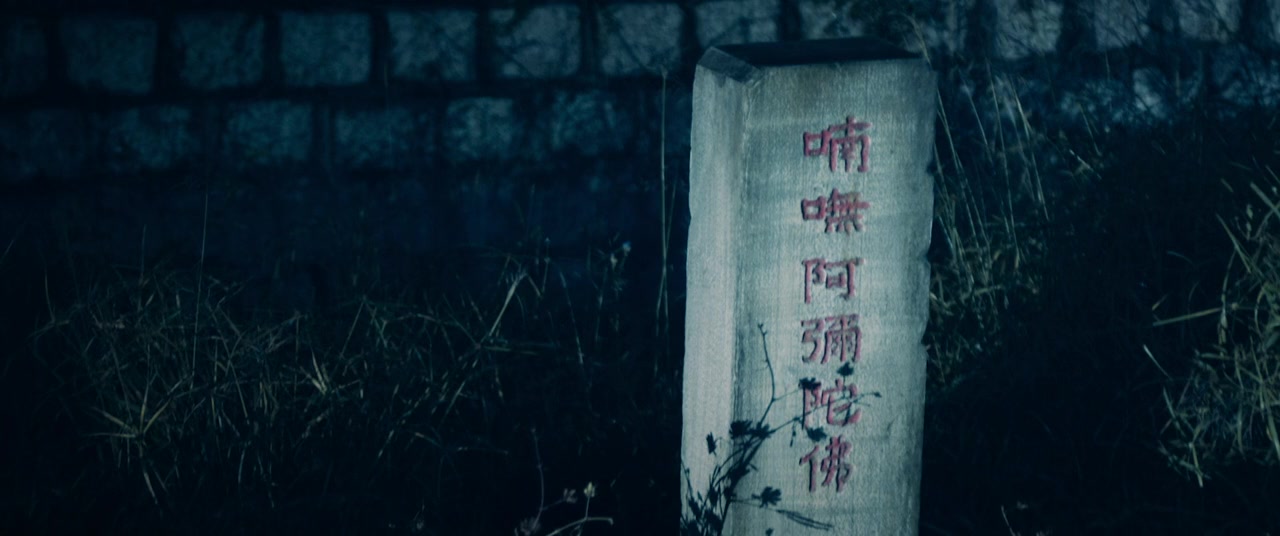 喃嘸阿彌陀佛